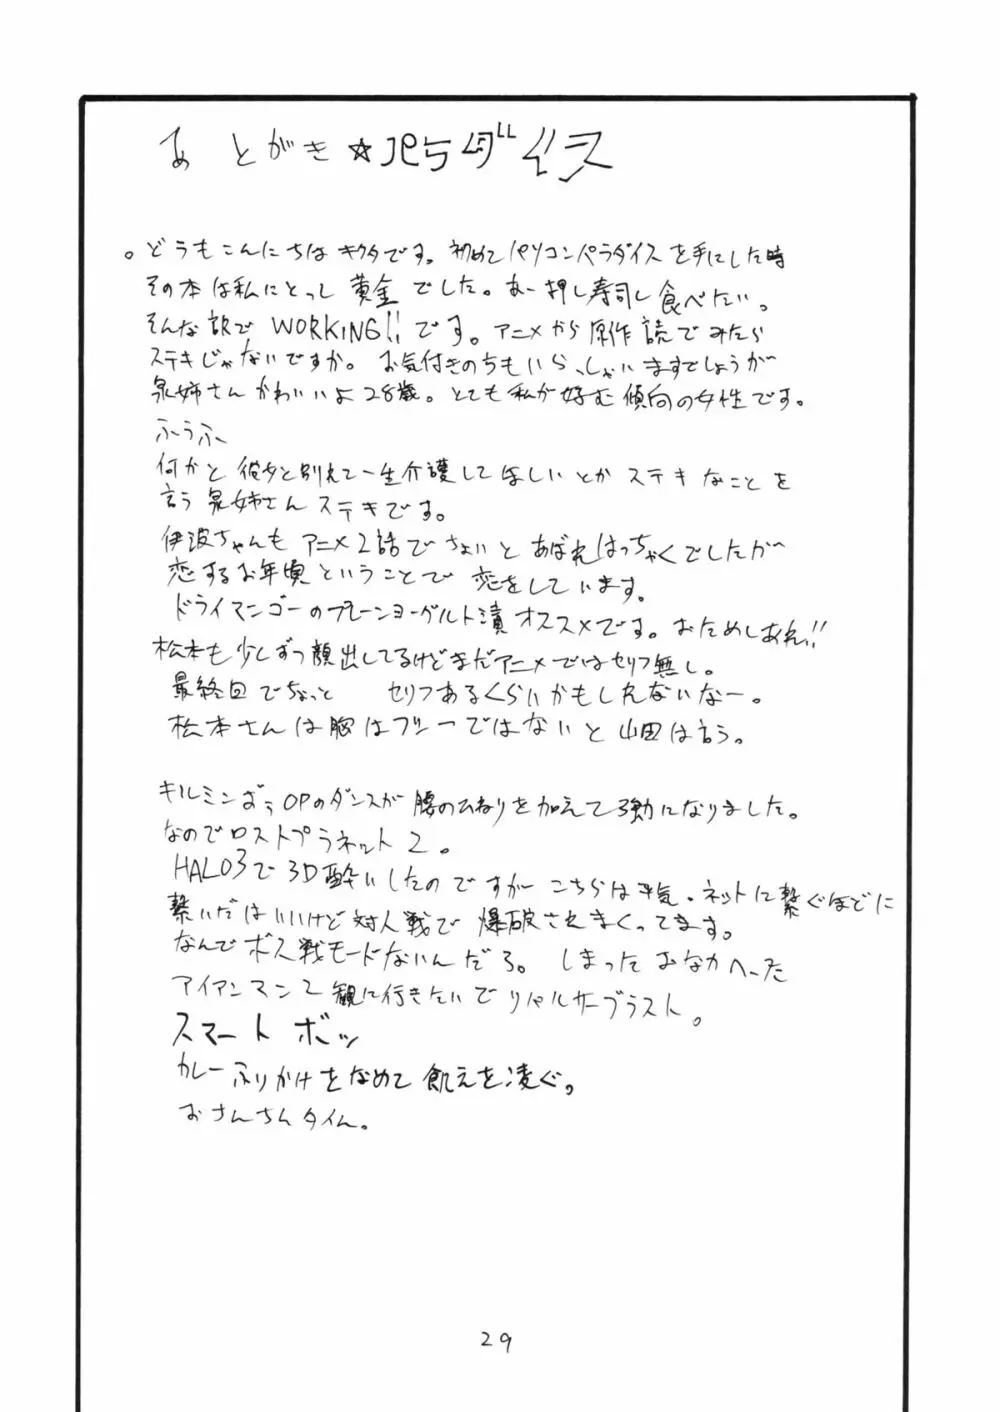 あとがき☆パラダイス
。どうもこんにちはキクタです。初めてパソコンパラダイスを手にした時
その本は私にとって黄金でした。あー押し寿司し食べたい。
そんな訳でWORKING!!です。アニメから原作読でみたら
ステキじゃないですか。お気付きのちもいらっしゃいますでしょうが
泉姉さんかわいいよ28歳。とても私が好む傾向の女性です。
ふうふ
何かと彼女と別れて一生介護してほしいとかステキなことを
言う泉姉さんステキです。
伊波ちゃんもアニメ2話でちょいとあばれはっちゃくでしたが
恋するお年頃ということで恋をしています。
ドライマンゴーのプレーンヨーグルト漬オススメです。おためしあれ!!
松本も少しずつ顔出ししてるけどまだアニメではセリフ無し。
最終回でちょっと セリフあるくらいかもしれないなー。
松本さんは胸はフリーではないと山田は言う。
キルミンずぅOPのダンスが腰のひねりを加えて3割になりました。
なのでロストプラネット2。
HALO3で3D酔いしたのですがこちらは平気。ネットに繋ぐほどに
繋いだはいいけど対人戦で爆破されまくってます。
なんでボス戦モードないんだろ。しまったおなかへった
アイアンマン2観に行きたいでリパルサーブラスト。
スマートボッ
カレーふりかけをなめて飢えを凌ぐ。
おさんちんタイム。
29